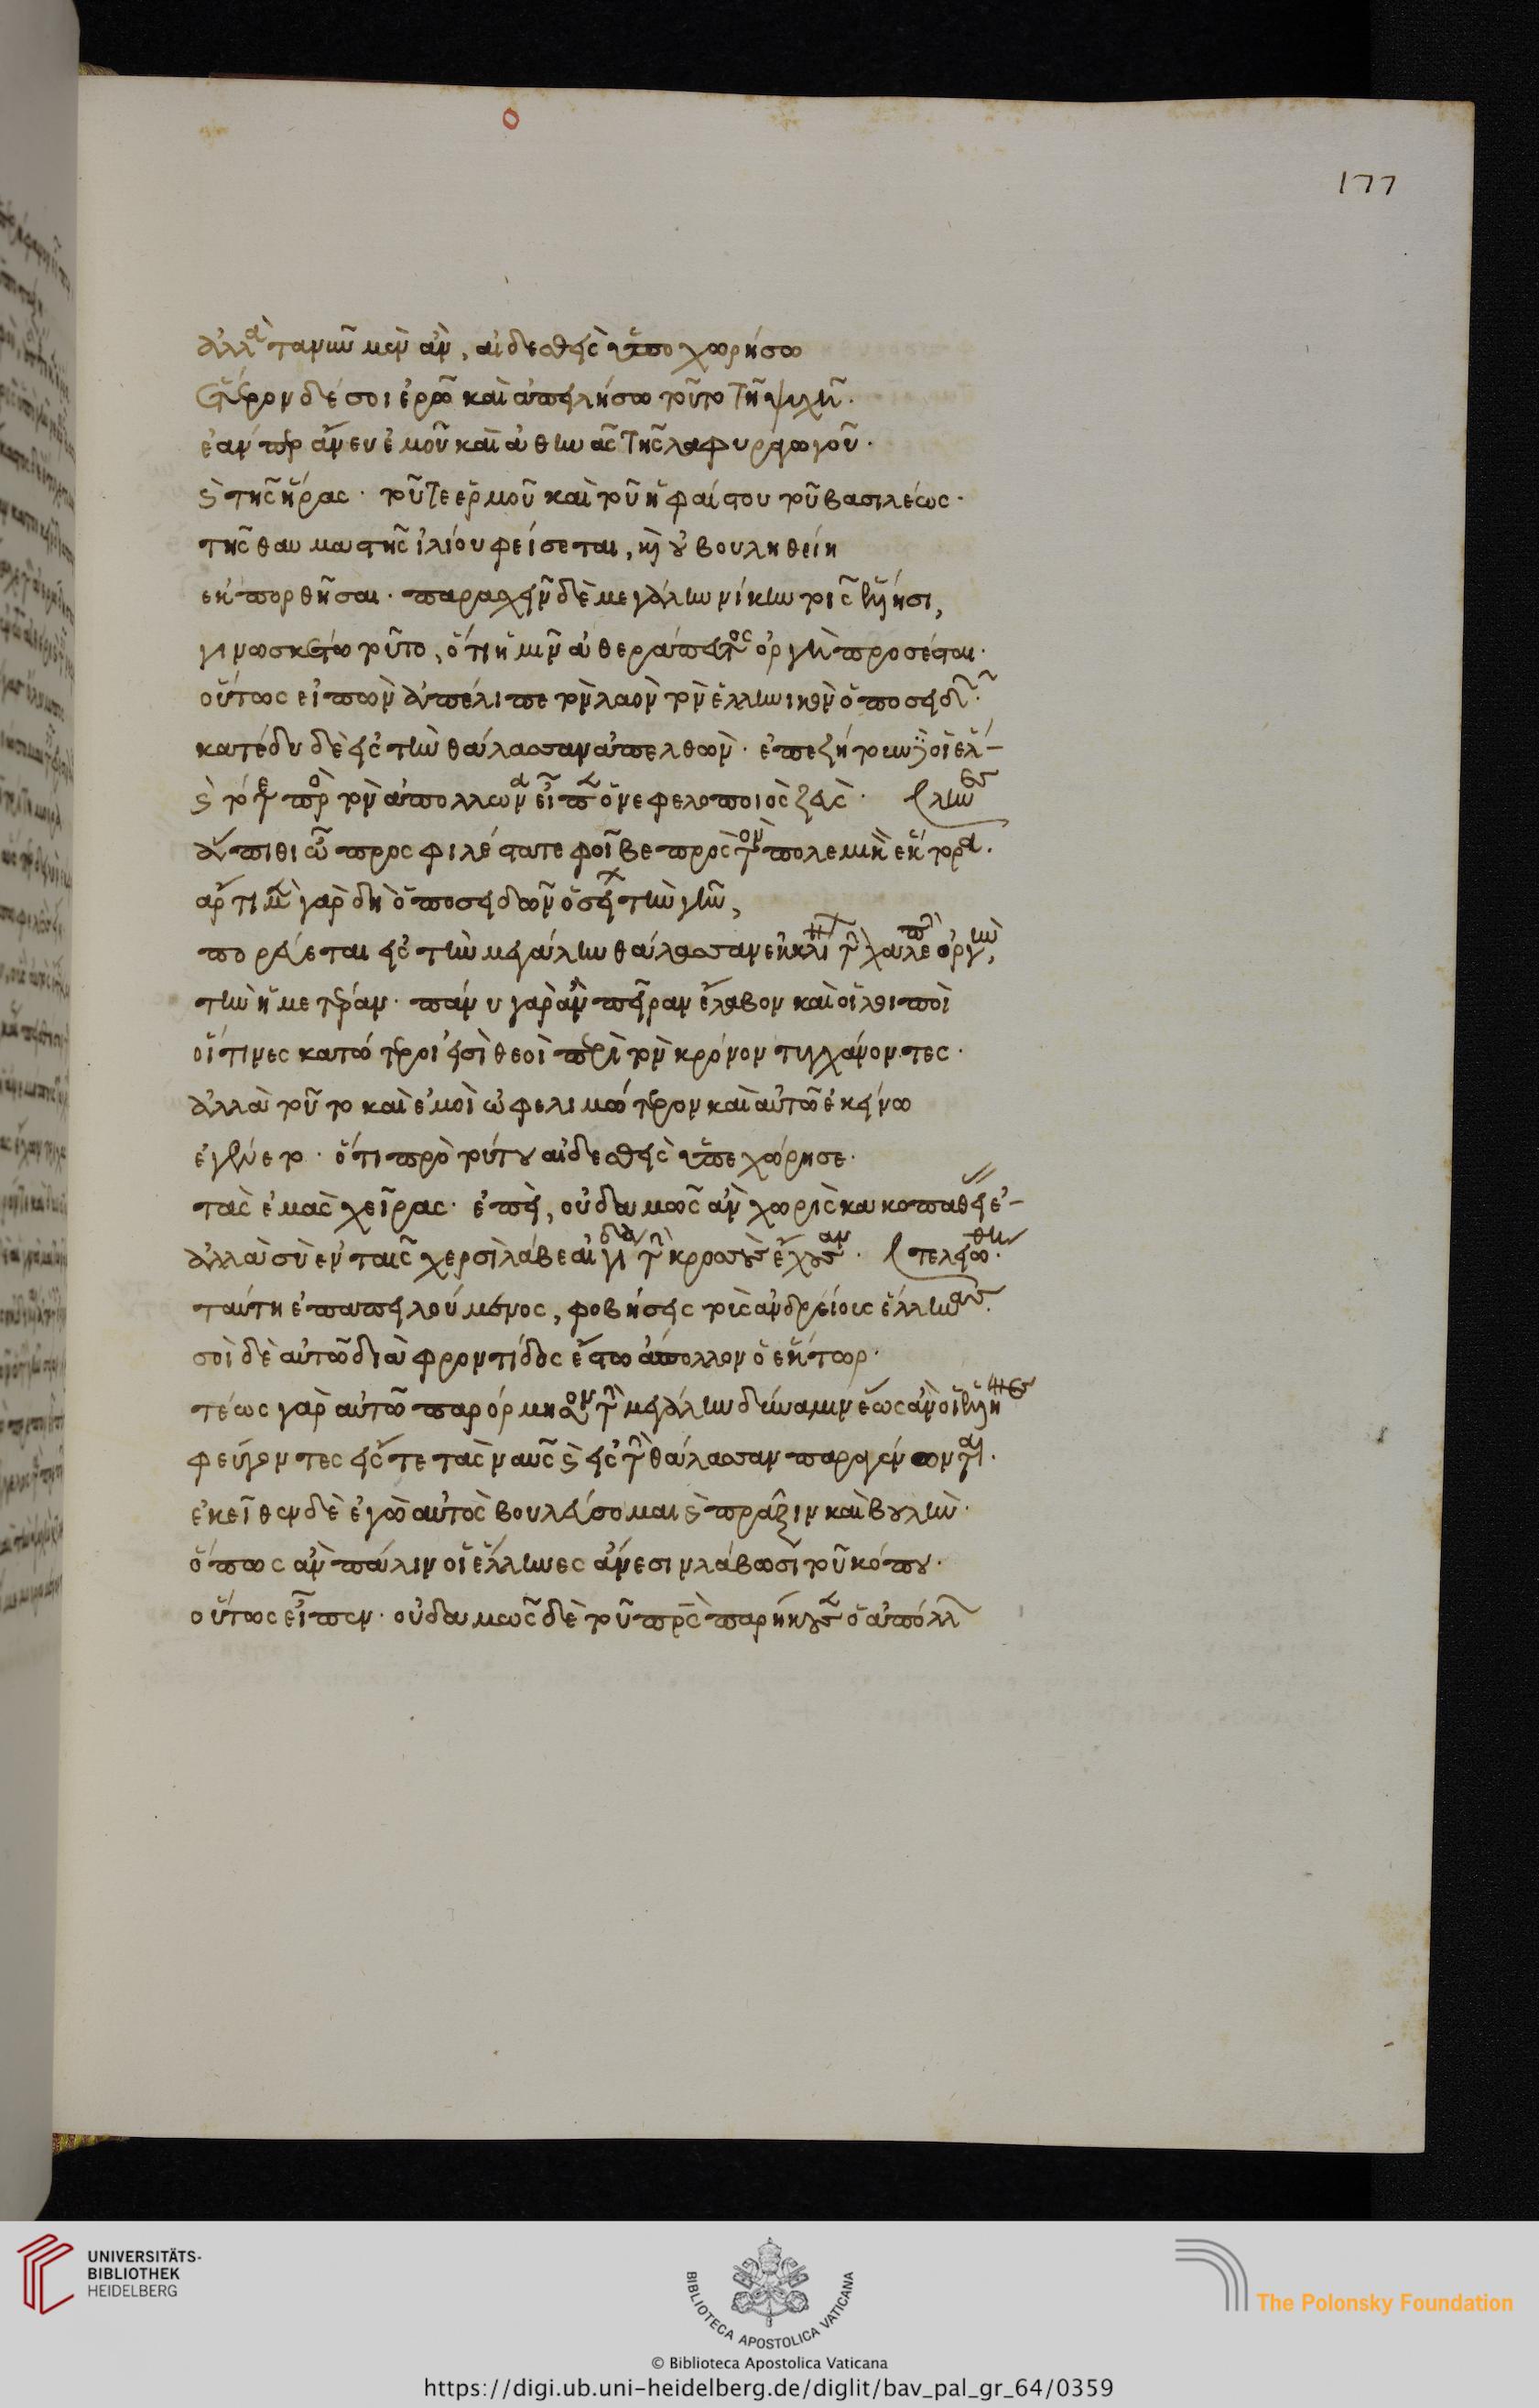 ο
177
ἀλλὰ τανῦν μὲν ἂν, αἰδεσθεὶς ὑποχωρήσω
ἕτερον δέ σοι ἐρῶ καὶ ἀπειλήσω τοῦτο τῇ ψυχῇ.
ἐάν περ ἄνευ ἐμοῦ καὶ ἀθηνᾶς τῆς λαφυραγωγοῦ.
καὶ τῆς ἥρας. τοῦ τε ἑρμοῦ καὶ τοῦ ἡφαίστου τοῦ βασιλέως.
τῆς θαυμαστῆς ἰλίου φείσεται, καὶ οὐ βουληθείη
ἐκπορθῆσαι. παρασχεῖν δὲ μεγάλην νίκην τοῖς ἕλλησι,
γινωσκέτω τοῦτο, ὅτι ἡμῖν ἀθεράπευτος ὀργὴ προσέσται.
οὕτως εἰπὼν ἀπέλιπε τὸν λαὸν τὸν ἑλληνικὸν ὁ ποσειδῶν.
κατέδυ δὲ εἰς τὴν θάλασσαν ἀπελθών. ἐπεζήτουν δὲ οἱ ἕλ-
ληνες
καὶ τότε πρὸς τὸν ἀπόλλωνα εἶπεν ὁ νεφελοποιὸς ζεύς.
ἄπιθι ὦ προσφιλέστατε φοῖβε πρὸς τὸν πολεμικὸν ἕκτορα.
ἄρτι μὲν γὰρ δὴ ὁ ποσειδῶν ὁ σείων τὴν γῆν,
πορεύεται εἰς τὴν μεγάλην θάλασσαν ἐκκλίνας τὴν χαλεπὴν ὀργὴν,
τὴν ἡμετέραν. πάνυ γὰρ ἂν πεῖραν ἔλαβον καὶ οἱ λοιποὶ
οἵτινες κατώτεροι εἰσὶ θεοὶ περὶ τὸν κρόνον τυγχάνοντες.
ἀλλὰ τοῦτο καὶ ἐμοὶ ὠφελιμώτερον καὶ αὐτῶ ἐκείνω
ἐγένετο. ὅτι πρὸ τούτου αἰδεσθεὶς ὑπεχώρησε.
τὰς ἐμὰς χεῖρας. ἐπεὶ, οὐδαμῶς ἂν χωρὶς κακοπαθείας ἐ-
τελειώθη.
ἀλλὰ σὺ ἐν ταῖς χερσὶ λάβε αἰγίδα τὴν κροσσοὺς ἔχουσαν.
ταύτη ἐπαπειλούμενος, φοβήσεις τοὺς ἀνδρείους ἕλληνας.
σοὶ δὲ αὐτῶ διὰ φροντίδος ἔστω ἄπολλον ὁ ἕκτωρ.
τέως γὰρ αὐτῶ παρόρμησον τὴν μεγάλην δύναμιν ἕως ἂν οἱ ἕλληνες
φεύγοντες εἴς τε τὰς ναῦς καὶ εἰς τὴν θάλασσαν παραγένωνται.
ἐκεῖθεν δὲ ἐγὼ αὐτὸς βουλεύσομαι καὶ πρᾶξιν καὶ βουλήν.
ὅπως ἂν πάλιν οἱ ἕλληνες ἄνεσιν λάβωσι τοῦ κόπου.
οὕτως εἶπεν. οὐδαμῶς δὲ τοῦ πατρὸς παρήκουσεν ὁ ἀπόλλων
UNIVERSITÄTS-
BIBLIOTHEK
HEIDELBERG
BIBLIOTECA APOSTOLICA VATICANA
The Polonsky Foundation
© Biblioteca Apostolica Vaticana
https://digi.ub.uni-heidelberg.de/diglit/bav_pal_gr_64/0359